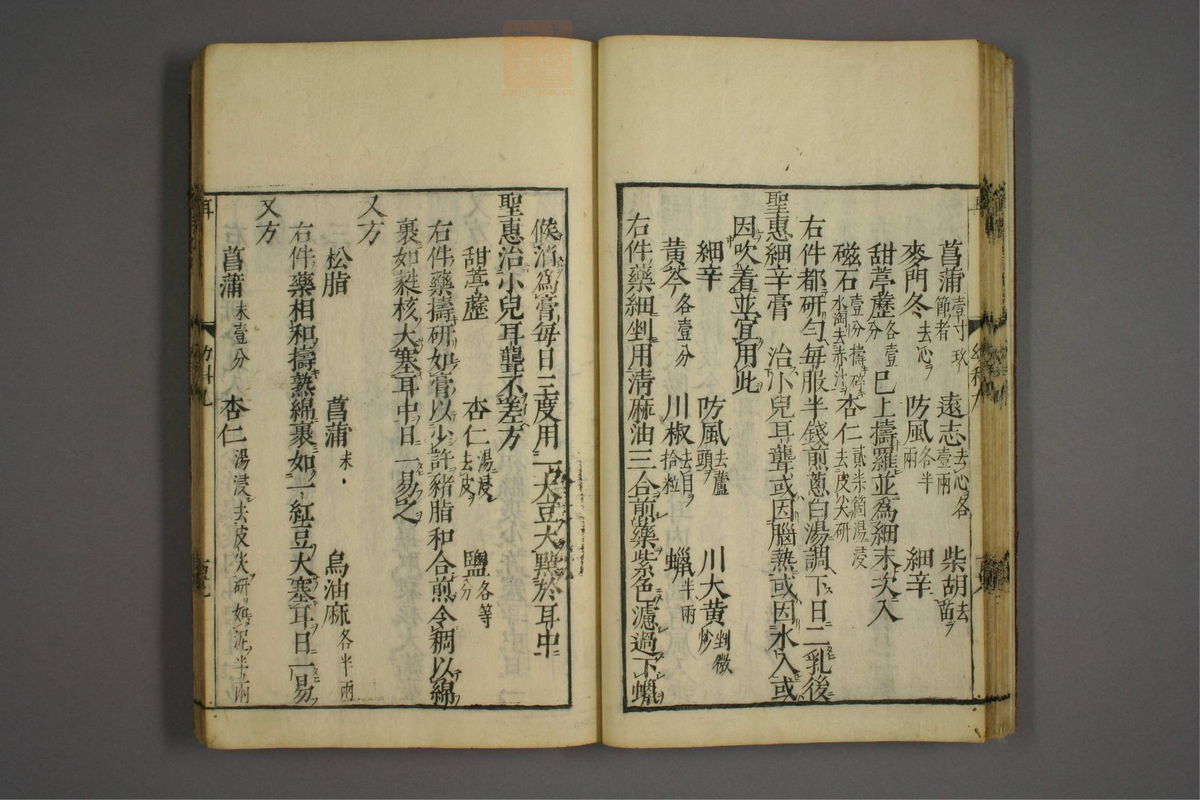 菖蒲壹寸玖節者　遠志去心各壹兩　柴胡去苗
麥門冬去心　防風各半兩　細辛
甜葶藶各壹分　已上擣羅並為細末次入
磁石壹分擣碎水淘去赤汁　杏仁貳柒箇湯浸去皮尖研
右件都研勻每服半錢煎蔥白湯調下日二乳後
聖惠細辛膏　治小兒耳聾或因腦熱或因水入或
因吹着並宜用此
細辛　防風去蘆頭　川大黃剉微炒
黃芩各壹分　川椒去目拾粒　蠟半兩
右件藥細剉用清麻油三合煎藥紫色濾過下蠟
候消為膏每日三度用一大豆大點於耳中
聖惠治小兒耳聾不差方
甜葶藶　杏仁湯浸去皮　鹽各等分
右件藥擣研如膏以少許豬脂和合煎令稠以綿
裹如蕤核大塞耳中日一易之
又方
松脂　菖蒲末　烏油麻各半兩
右件藥相和擣熟綿裹如一紅豆大塞耳日一易
又方
菖蒲末壹分　杏仁湯浸去皮尖研如泥半兩
耳
幼科九